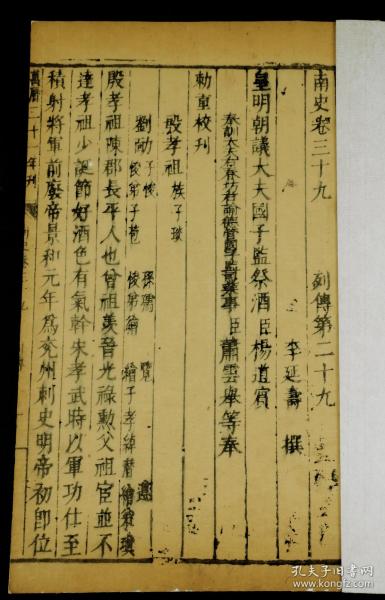 南史卷三十九 列傳第二十九
李延壽 撰
皇明朝議大夫國子監祭酒臣楊道賓
司業事臣蕭雲舉等奉
勑重校刊
殷孝祖 族子琰
劉勔 子悛 孫孺 覽 遵
悛弟子苞 悛弟繪 繪子孝綽 繪弟瑱
殷孝祖陳郡長平人也曾祖羨晉光祿勳父祖宦並不
達孝祖少誕節好酒色有氣幹宋孝武時以軍功仕至
積射將軍前廢帝景和元年爲兗州刺史明帝初卽位
萬曆二十 年刊
孔夫子旧书网